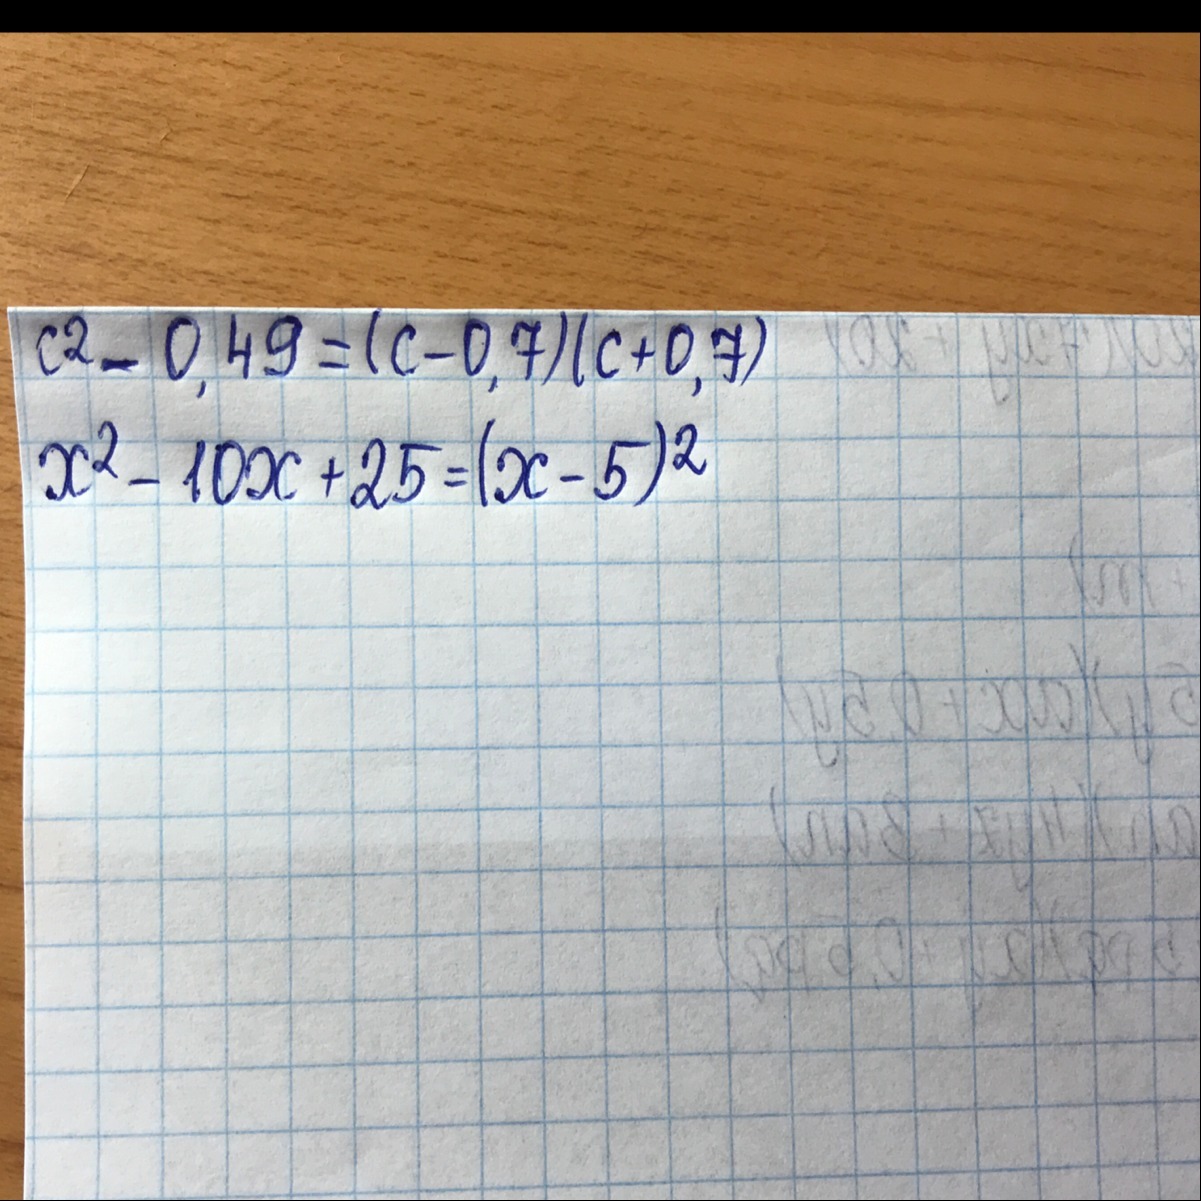 c² - 0,49 = (c - 0,7)(c + 0,7)
x² - 10x + 25 = (x - 5)²